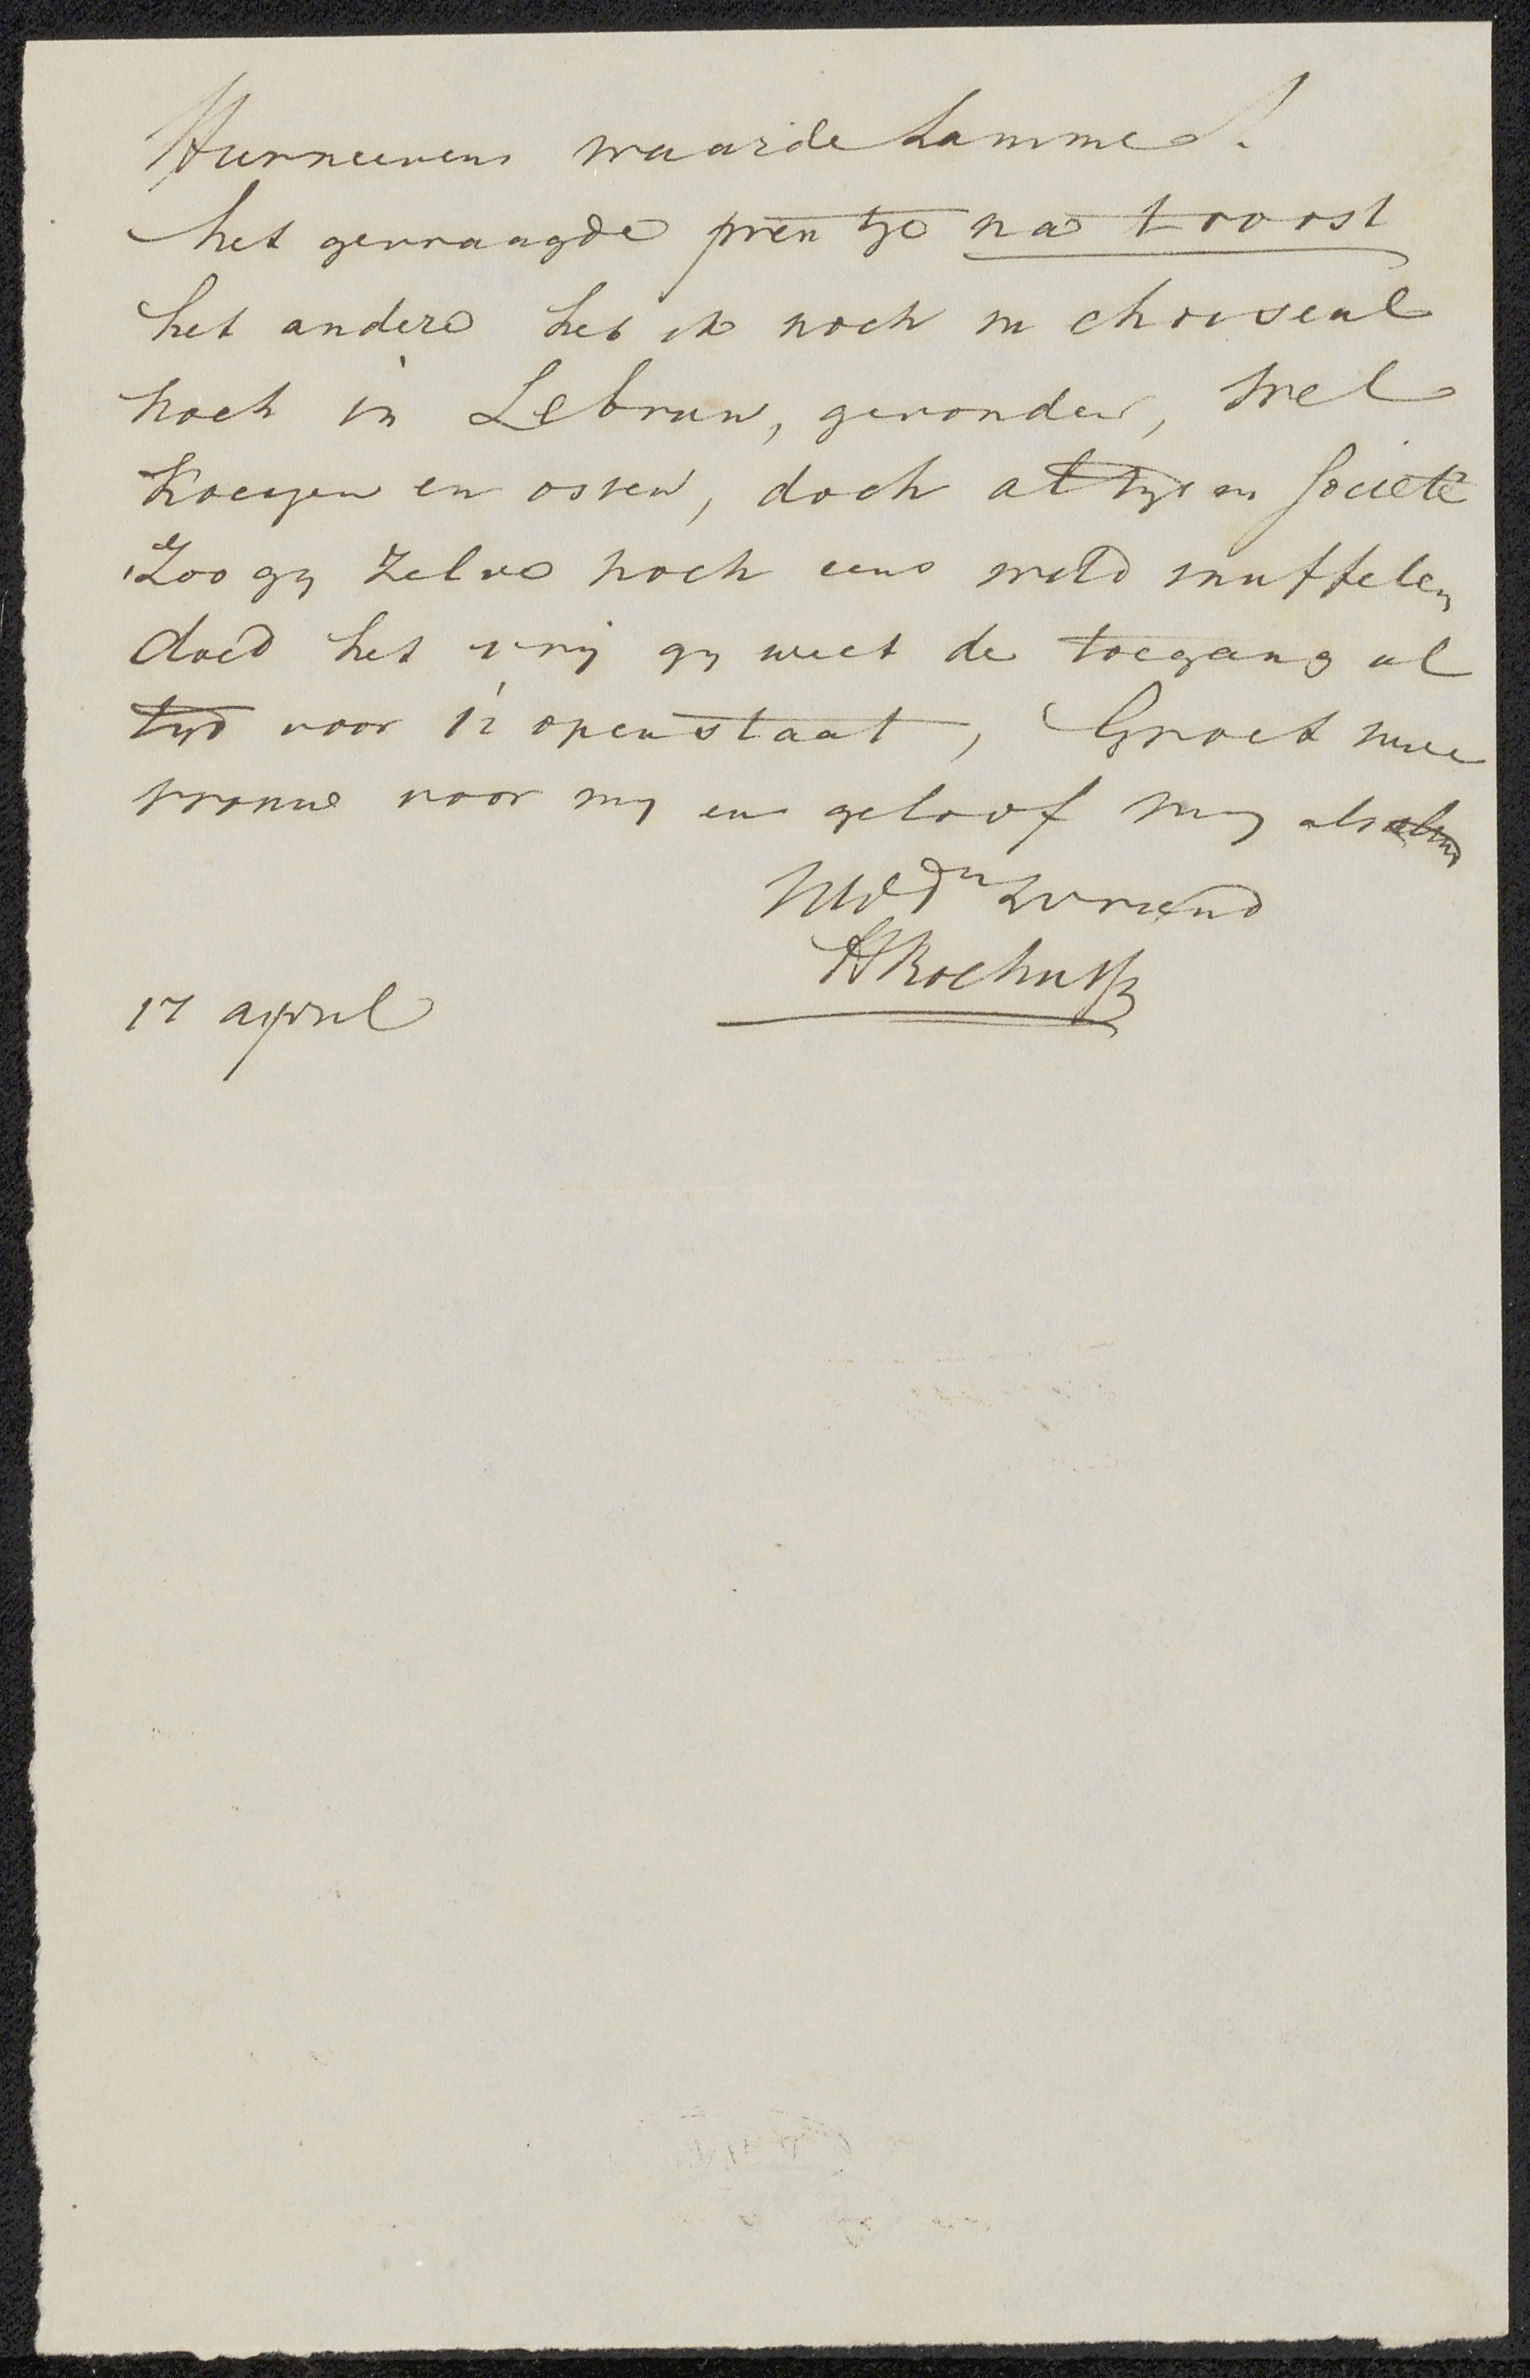 Hierneevens waarde Lamme!
het gevraagde prentje na troost
het andere heb ik noch in choiseul
noch in Lebrun, gevonden, wel
koeyen en ossen, doch altyd en societé
Zoo gy zelve noch eens wild snuffelen
doed het vrij gy weet de toegang al
tyd voor U openstaat, Groet uwe
vrouwe voor my en geloof my als
UwEdn Dvriend
Rochussen
17 april